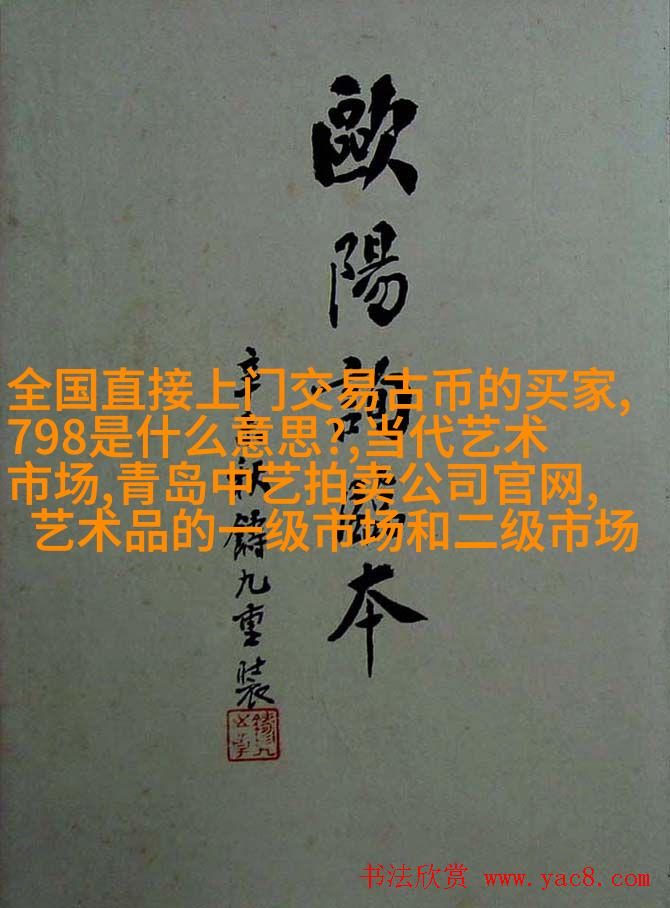 歐陽詢本
辛酉秋鑄九重裝
全国直接上门交易古币的买家,
798是什么意思?,当代艺术
市场,青岛中艺拍卖公司官网,
艺术品的一级市场和二级市场
书法欣赏 www.yac8.com